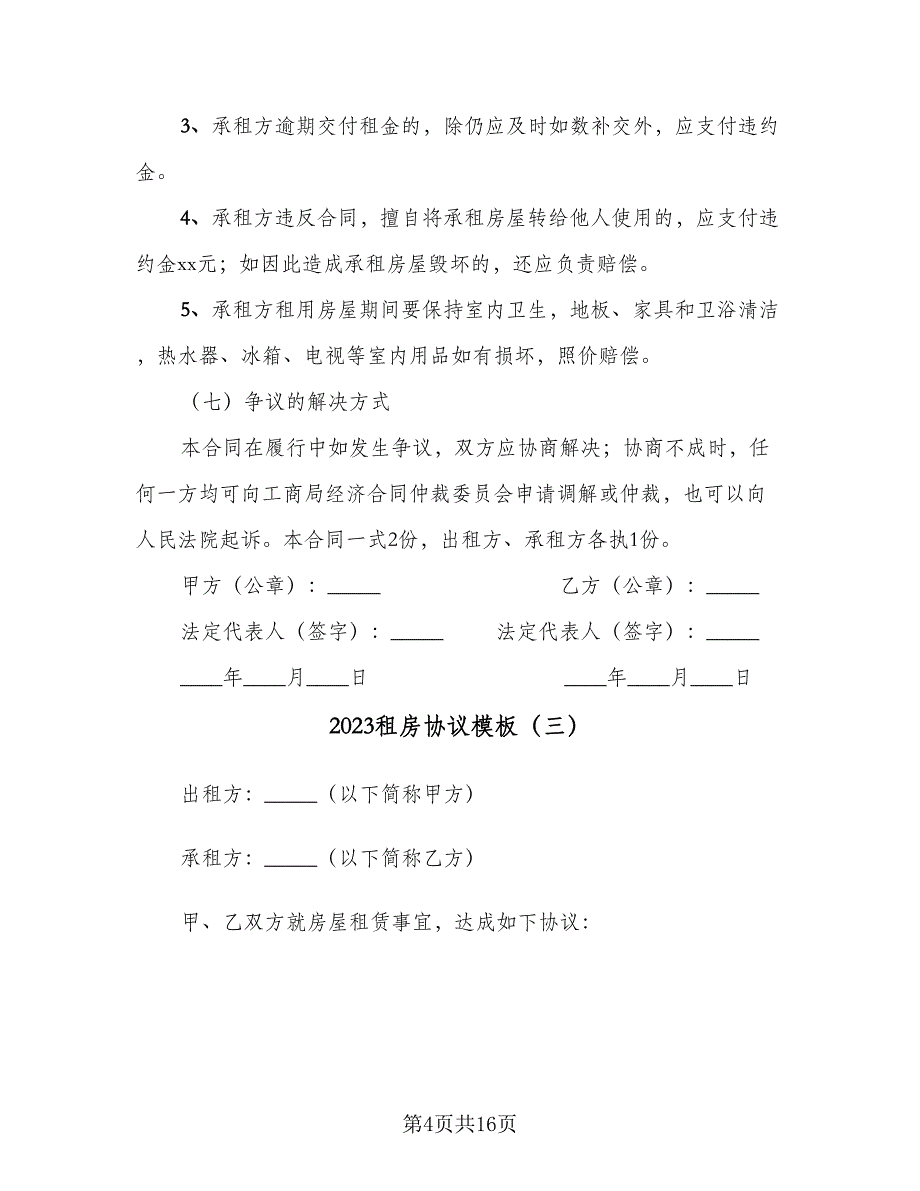 3、承租方逾期交付租金的，除仍应及时如数补交外，应支付违约
金。
4、承租方违反合同，擅自将承租房屋转给他人使用的，应支付违
约金xx元；如因此造成承租房屋毁坏的，还应负责赔偿。
5、承租方租用房屋期间要保持室内卫生，地板、家具和卫浴清洁
，热水器、冰箱、电视等室内用品如有损坏，照价赔偿。
（七）争议的解决方式
本合同在履行中如发生争议，双方应协商解决；协商不成时，任
何一方均可向工商局经济合同仲裁委员会申请调解或仲裁，也可以向
人民法院起诉。本合同一式2份，出租方、承租方各执1份。
甲方（公章）：_____ 乙方（公章）：_____
法定代表人（签字）：_____ 法定代表人（签字）：_____
____年____月____日 ____年____月____日
2023租房协议模板（三）
出租方：_____（以下简称甲方）
承租方：_____（以下简称乙方）
甲、乙双方就房屋租赁事宜，达成如下协议：
第4页共16页